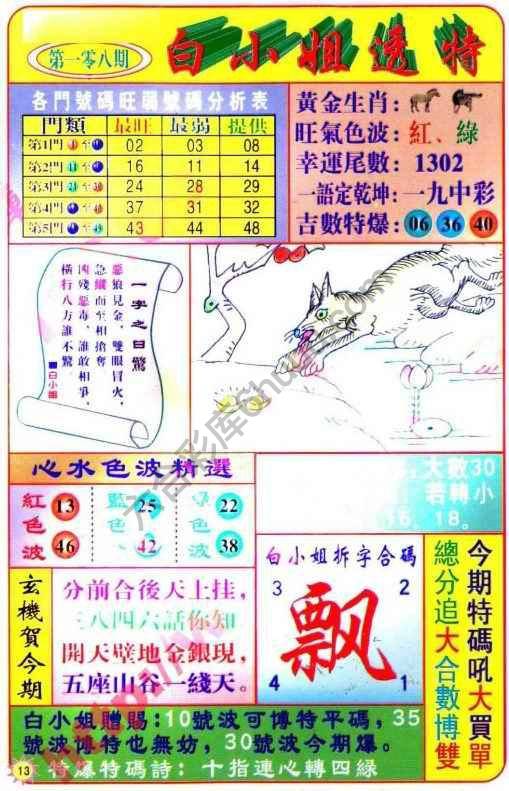 第一零八期
白小姐透特
各門號碼旺弱號碼分析表
門類 最旺 最弱 提供
第1門 至 02 03 08
第2門 至 16 11 14
第3門 至 24 28 29
第4門 至 37 31 32
第5門 至 43 44 48
黃金生肖：
旺氣色波：紅、綠
幸運尾數：1302
一語定乾坤：一九中彩
吉數特爆：06 36 40
一字之曰驚
惡狼見金，雙眼冒火，
急竄而至相搶奪
凶殘惡毒，誰敢相爭，
橫行八方誰不驚
白小姐
心水色波精選
紅色波 13 46
藍色 25 42
色波 22 38
大數30
若轉小
16，18。
白小姐拆字合碼
3 2
飘
4 1
今期特碼吼大買單
總分追大合數博雙
玄機賀今期
分前合後天上挂，
三八四六話你知
開天壁地金銀現，
五座山谷一綫天。
白小姐贈賜：10號波可博特平碼，35
號波博特也無妨，30號波今期爆。
特爆特碼詩：十指連心轉四綠
13